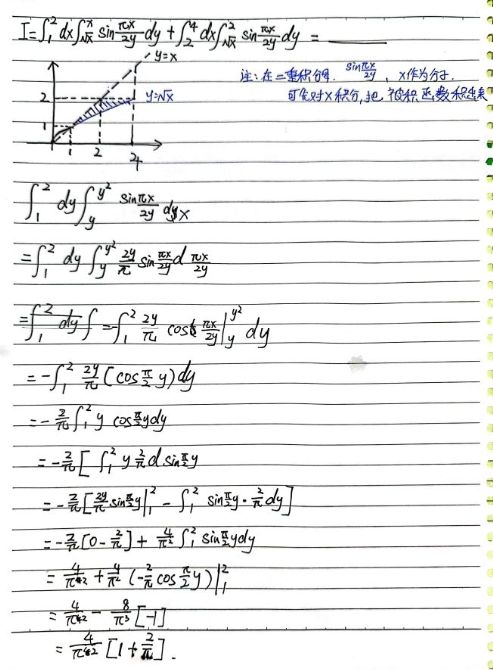 I=∫₁² dx∫_{√x}^{x} sin πx/2y dy + ∫₂⁴ dx∫_{√x}^{2} sin πx/2y dy = ______
y=x
注: 在二重积分中, sin πx/2y, x作为分子.
可先对x积分, 把被积函数积出来
2
y=√x
1
1 2 4
∫₁² dy∫_{y}^{y²} sin πx/2y dx
=∫₁² dy ∫_{y}^{y²} 2y/π sin πx/2y d πx/2y
=∫₁² dy ∫ =-∫₁² 2y/π cos πx/2y |_{y}^{y²} dy
=-∫₁² 2y/π (cos π/2 y) dy
=-2/π ∫₁² y cos π/2 y dy
=-2/π [ ∫₁² y 2/π d sin π/2 y
=-2/π [ 2y/π sin π/2 y |₁² - ∫₁² sin π/2 y · 2/π dy ]
=-2/π [0-2/π] + 4/π² ∫₁² sin π/2 y dy
= 4/π² + 4/π² (-2/π cos π/2 y) |₁²
= 4/π² - 8/π³ [-1]
= 4/π² [1+2/π].